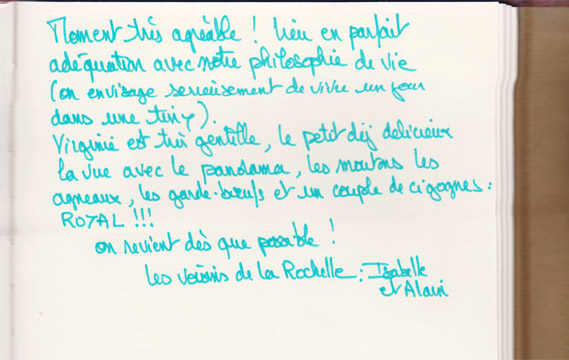 Moment très agréable ! lieu en parfait
adéquation avec notre philosophie de vie
(on envisage serieusement de vivre un jour
dans une tiny).
Virginie est très gentille, le petit déj delicieux
la vue avec le panorama, les moutons les
agneaux, les garde-boeufs et un couple de cigognes :
ROYAL !!!
on revient dès que possible !
les voisins de la Rochelle : Isabelle
et Alain